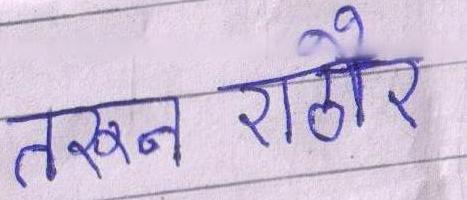 तरुन राठौर